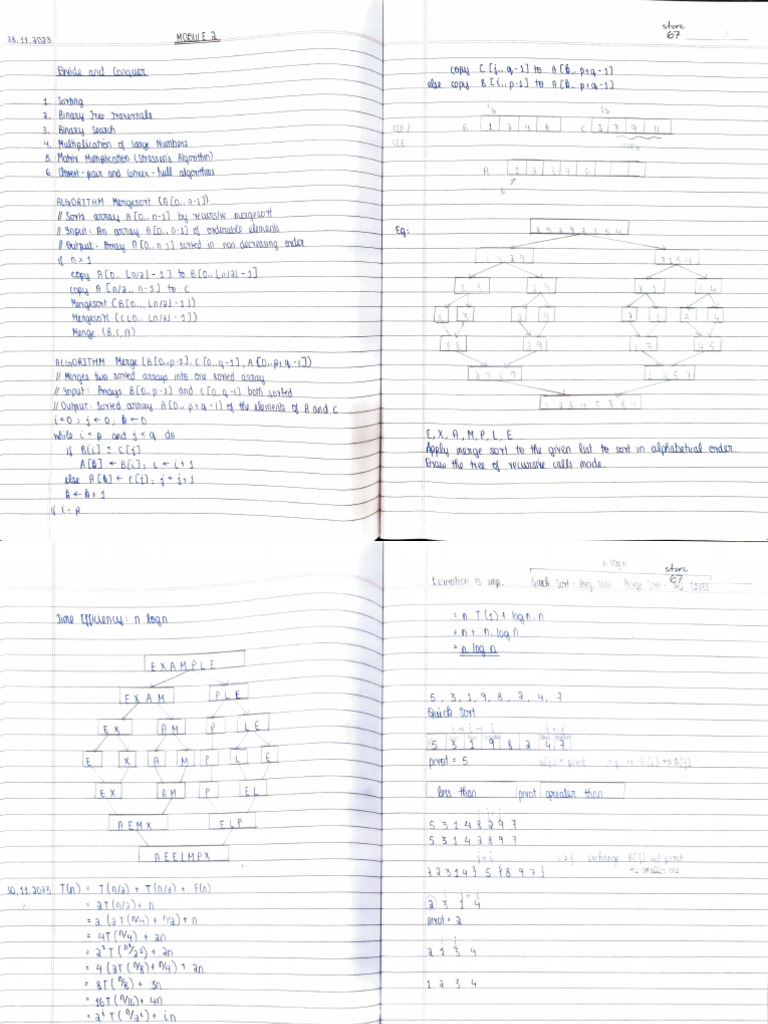 28.11.2023
MODULE 2
Divide and Conquer
1. Sorting
2. Binary Tree Traversals
3. Binary Search
4. Multiplication of Large Numbers
5. Matrix Multiplication (Strassen's Algorithm)
6. Closest-pair and Convex-Hull algorithms
ALGORITHM Mergesort (A[0..n-1])
// Sorts array A[0..n-1] by recursive mergesort
// Input: An array A[0..n-1] of orderable elements
// Output: Array A[0..n-1] sorted in non decreasing order
if n > 1
copy A[0..⌊n/2⌋-1] to B[0..⌊n/2⌋-1]
copy A[n/2..n-1] to C
Mergesort (B[0...⌊n/2⌋-1])
Mergesort (C[0..⌊n/2⌋-1])
Merge (B,C,A)
ALGORITHM Merge (B[0..p-1], C[0..q-1], A[0..p+q-1])
// Merges two sorted arrays into one sorted array
// Input: Arrays B[0..p-1] and C[0..q-1] both sorted
// Output: Sorted array A[0..p+q-1] of the elements of B and C
i←0; j←0; k←0
while i < p and j < q do
if B[i] ≤ C[j]
A[k] ← B[i]; i ← i+1
else A[k] ← C[j]; j ← j+1
k ← k+1
if i = p
store
67
copy C[j..q-1] to A[k..p+q-1]
else copy B[i..p-1] to A[k..p+q-1]
B 1 2 4 6 C 3 7 9 11
A 1 2 3 4 6
Eg:
8 3 2 9 7 1 5 4
8 3 2 9 7 1 5 4
8 3 2 9 7 1 5 4
8 3 2 9 7 1 5 4
3 8 2 9 1 7 4 5
2 3 8 9 1 4 5 7
1 2 3 4 5 7 8 9
E, X, A, M, P, L, E
Apply merge sort to the given list to sort in alphabetical order.
Draw the tree of recursive calls made.
Time Efficiency: n logn
EXAMPLE
EXAM PLE
EX AM P LE
E X A M P L E
EX AM P EL
AEMX ELP
AEELMPX
30.11.2023 T(n) = T(n/2) + T(n/2) + f(n)
= 2T(n/2) + n
= 2(2T(n/4) + n/2) + n
= 4T(n/4) + 2n
= 2²T(n/2²) + 2n
= 4(2T(n/8) + n/4) + 2n
= 8T(n/8) + 3n
= 16T(n/16) + 4n
= 2ⁱT(n/2ⁱ) + in
n logn
store
67
Derivation is imp. Quick Sort - Avg. Case Merge Sort -
= n T(1) + logn.n
= n + n.logn
= n.logn
5, 3, 1, 9, 8, 2, 4, 7
Quick Sort
5 3 1 9 8 2 4 7
pivot = 5
less than pivot greater than
5 3 1 4 8 2 9 7
5 3 1 4 2 8 9 7
i>j exchange A[j] w/ pivot
{2 3 1 4} 5 {8 9 7}
2 3 1 4
pivot = 2
2 1 3 4
1 2 3 4